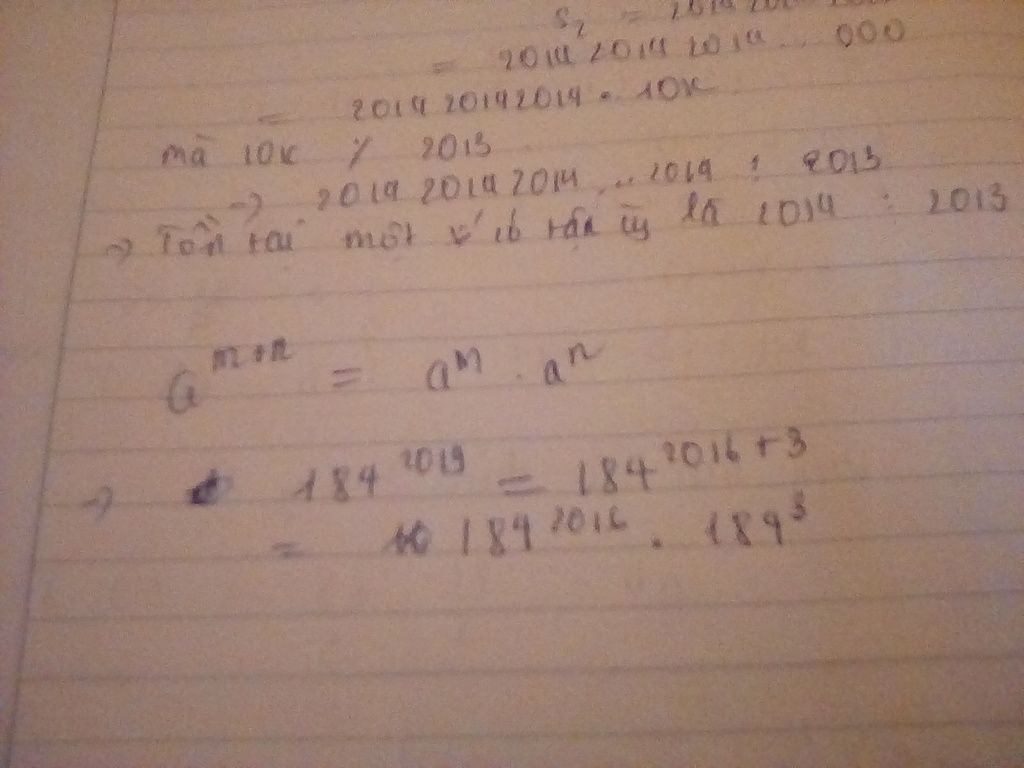 S₂ = 2014 201
= 2014 2014 2014 ... 000
= 2014 2014 2014 . 10k
mà 10k ⋮̸ 2013
→ 2014 2014 2014 ... 2014 ⋮ 2013
→ Tồn tại một số tận là 2014 ⋮ 2013
a^{m+n} = a^m . a^n
→ 184^{2019} = 184^{2016+3}
= 184^{2016} . 184^3